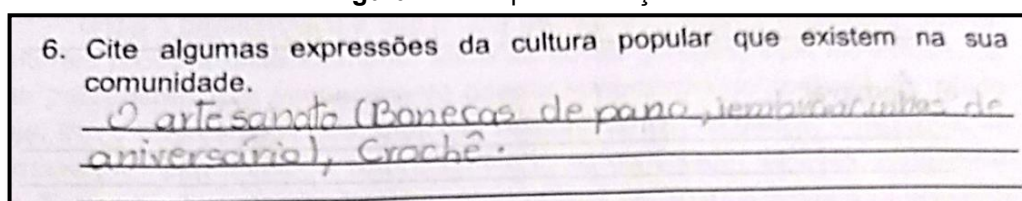 6. Cite algumas expressões da cultura popular que existem na sua
comunidade.
O artesanato (Bonecas de pano, lembrancinhas de
aniversário), Crochê.